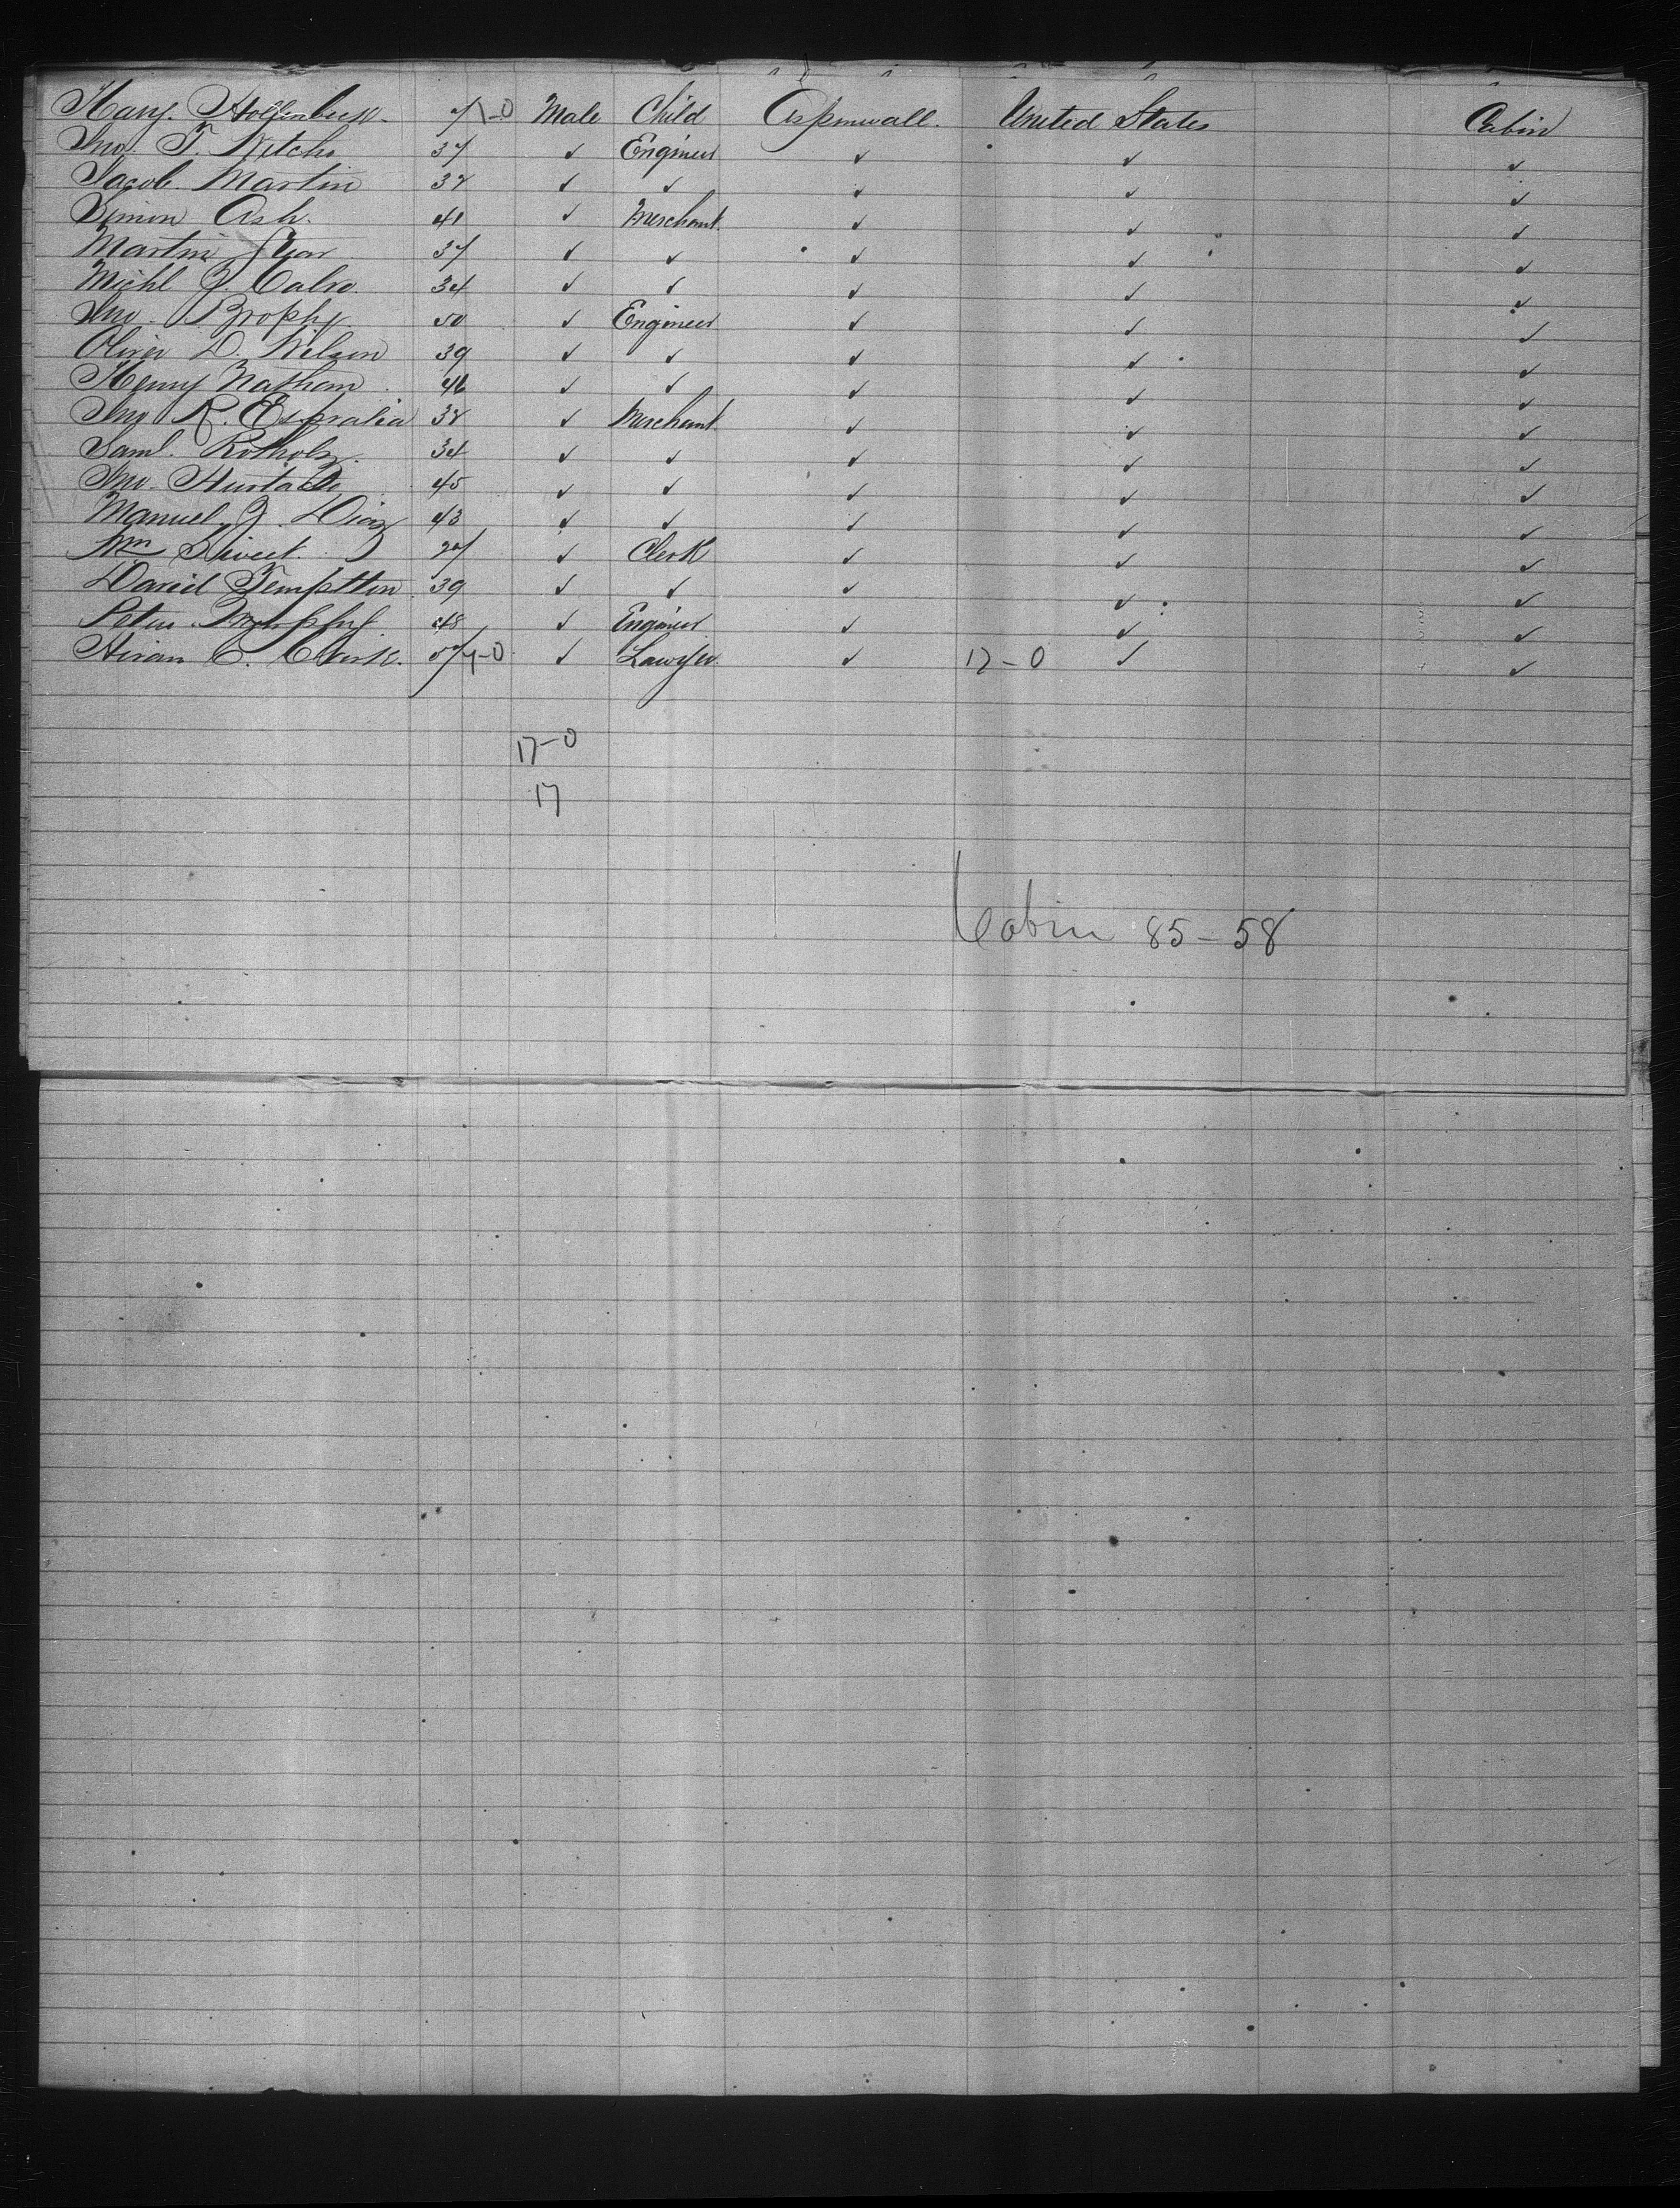 Harry. Hollenbeck. 7 1-0 Male Child Aspinwall. United States Cabin
Jno. T. Welch 37 ✓ Engineer ✓ ✓ ✓
Jacob Martin 38 ✓ ✓ ✓ ✓ ✓
Simon Ash. 41 ✓ Merchant. ✓ ✓ ✓
Martin 37 ✓ ✓ ✓ ✓ ✓
Michl J. Calvo. 34 ✓ ✓ ✓ ✓ ✓
Jno. Brophy. 50 ✓ Engineer ✓ ✓ ✓
Oliver D. Wilson 39 ✓ ✓ ✓ ✓ ✓
Henry Nathan 46 ✓ ✓ ✓ ✓ ✓
Jno R. Espralia 38 ✓ Merchant. ✓ ✓ ✓
Saml. Rotholz. 34 ✓ ✓ ✓ ✓ ✓
Jno. Hurtado 45 ✓ ✓ ✓ ✓ ✓
Manuel. J. Diaz 43 ✓ ✓ ✓ ✓ ✓
Wm Sweet. 27 ✓ Clerk ✓ ✓ ✓
David Templtton 39 ✓ ✓ ✓ ✓ ✓
Peter Murphy 48 ✓ Engineer ✓ ✓ ✓
Hiram C. Clark. 57 ✓ Lawyer. ✓ 17-0 ✓ ✓
17-0
17
Cabin 85-58